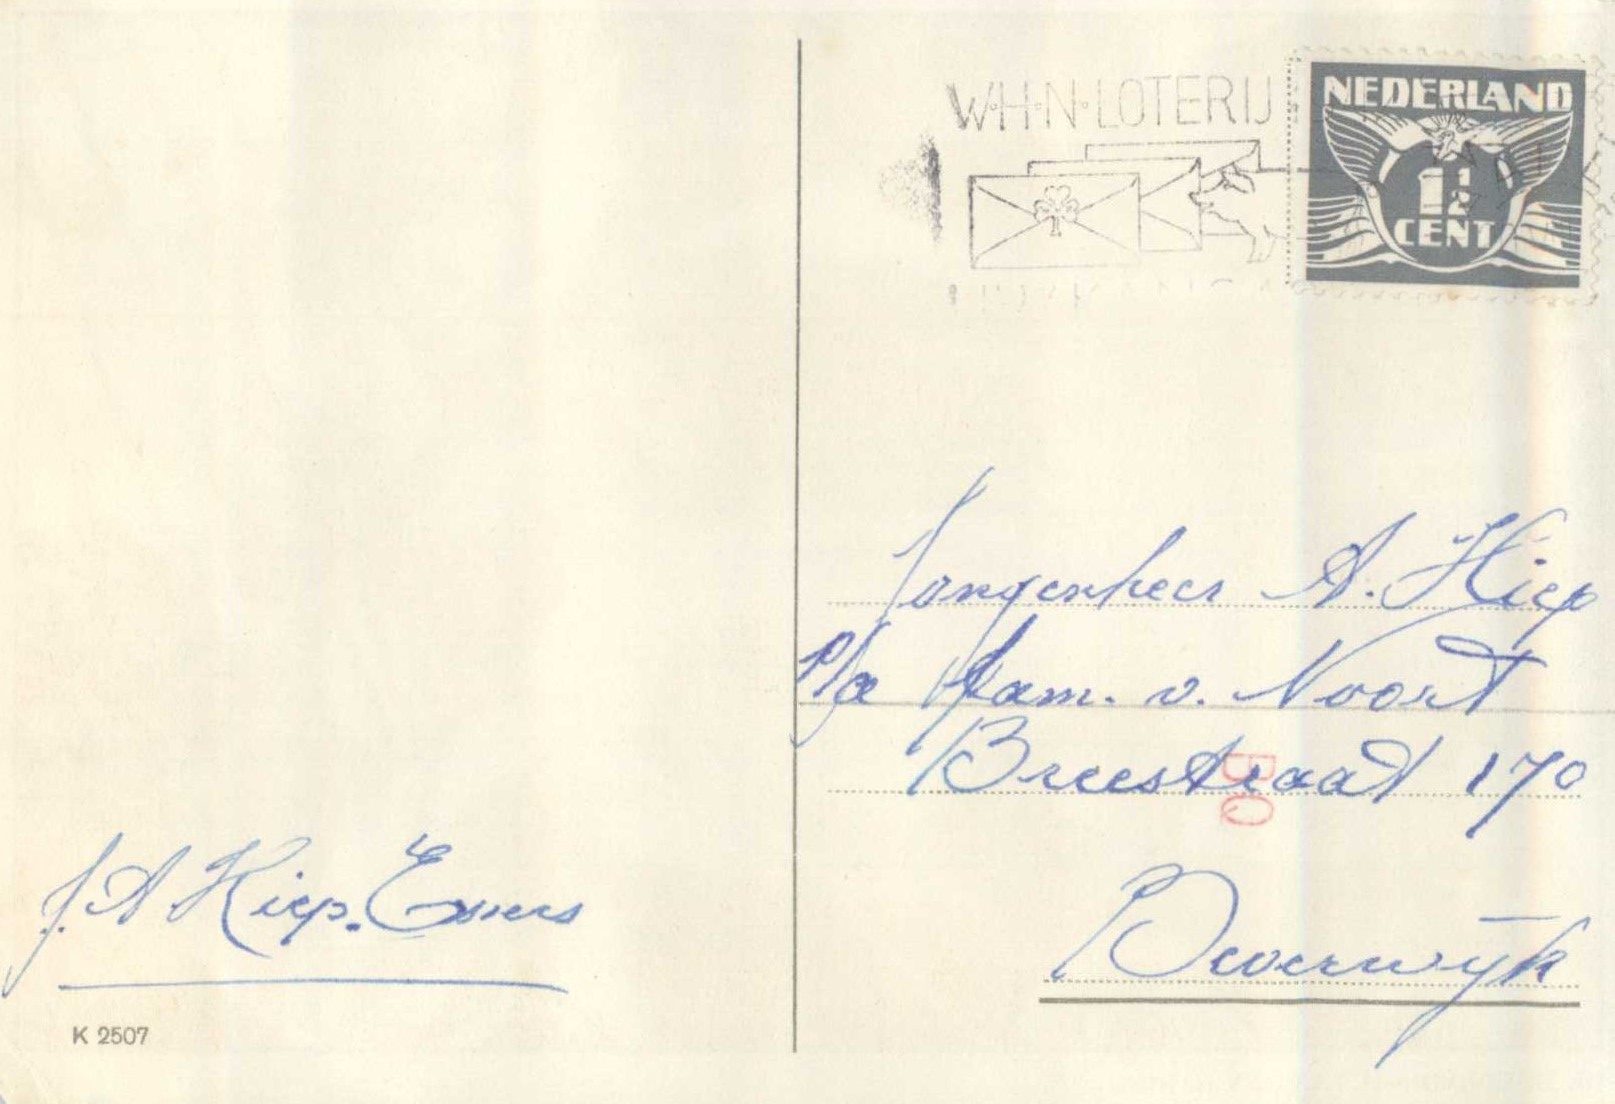 W·H·N·LOTERIJ
NEDERLAND
1½
CENT
Jongenheer A. Kiep
p/a fam. v. Noort
Breestraat 170
BQ
Beverwijk
J. A. Kiep. Essers
K 2507